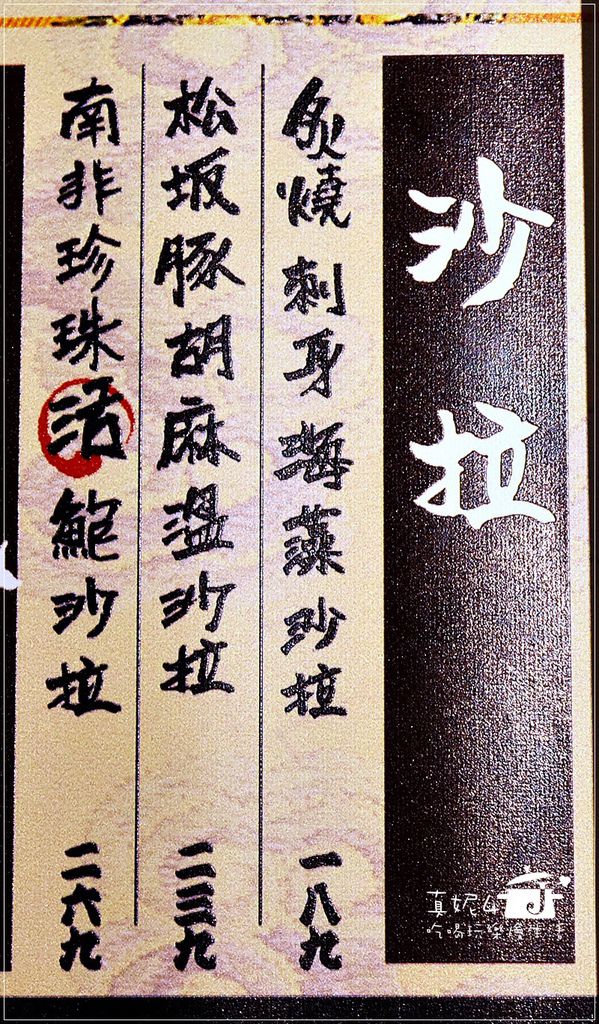 沙拉
炙燒刺身海藻沙拉 一八九
松坂豚胡麻溫沙拉 二三九
南非珍珠活鮑沙拉 二六九
真妮的
吃喝玩樂